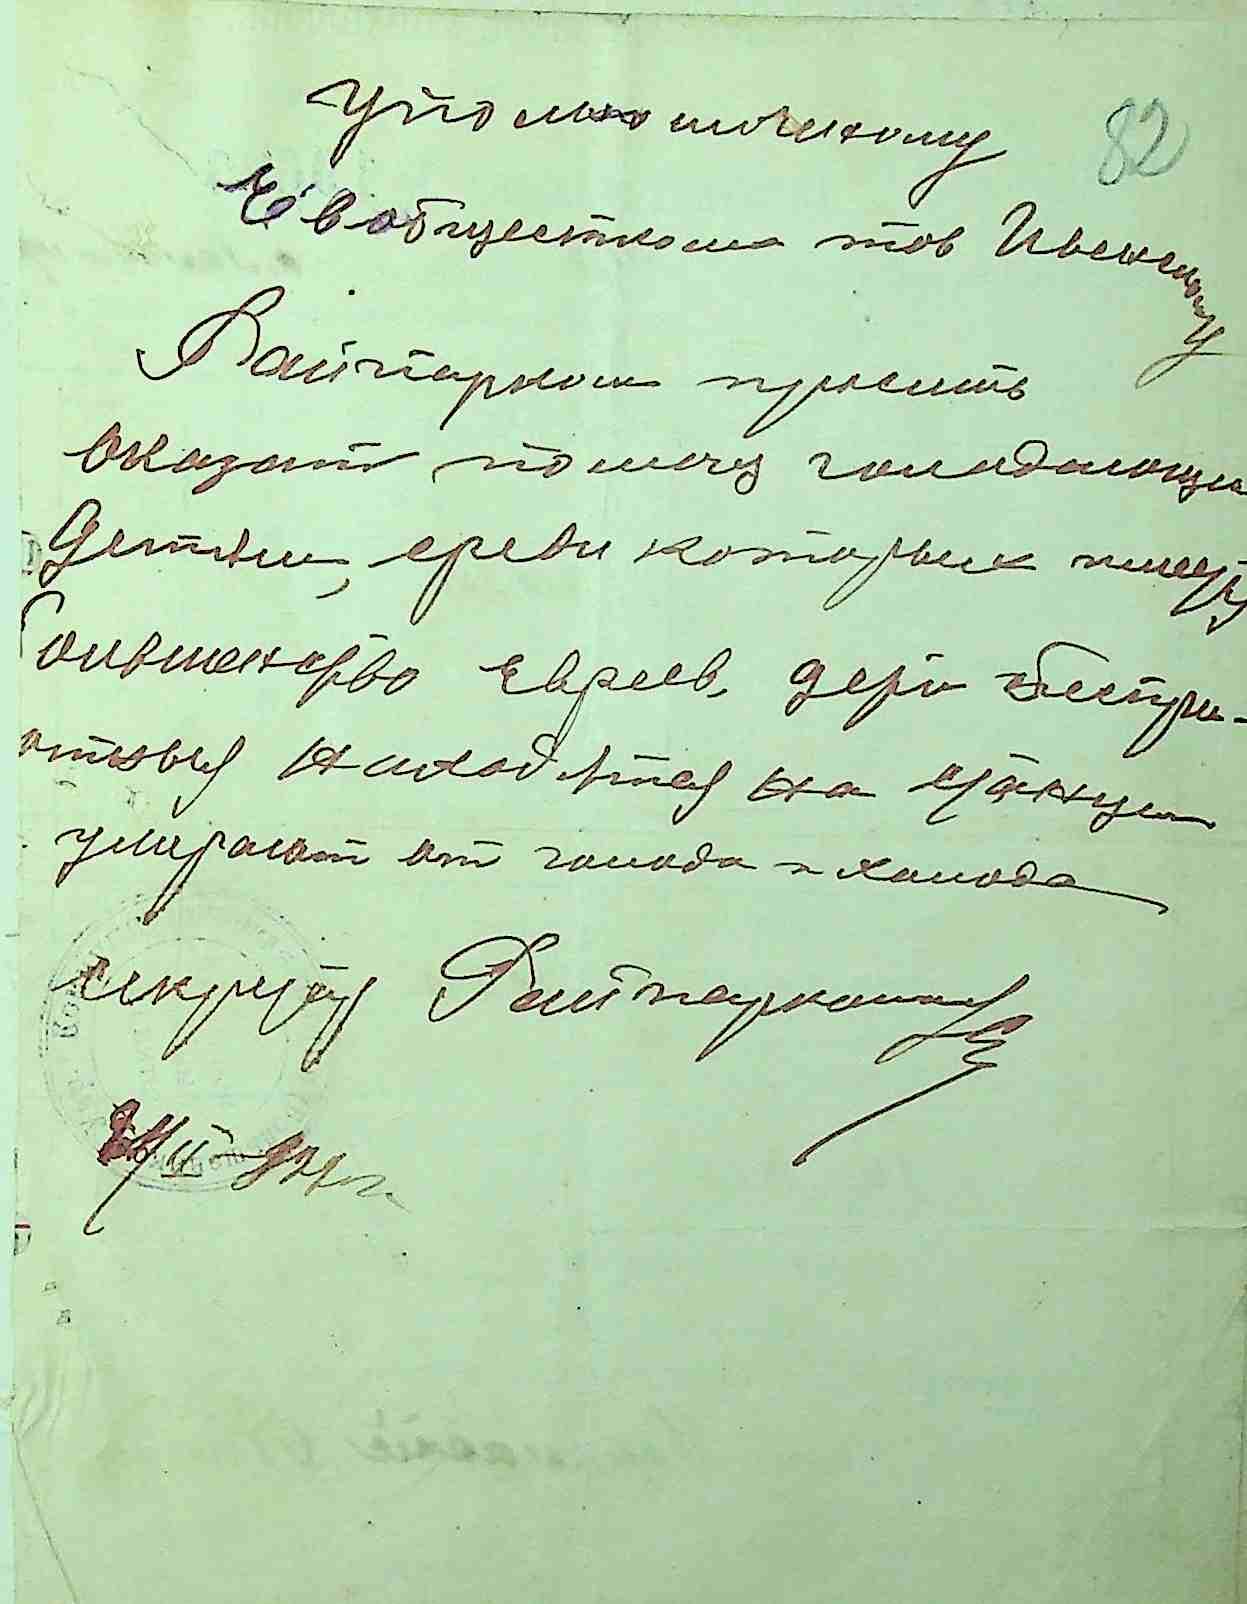 82
Уполномоченому
Евобщесткома тов Ивенскому
Райпарком просить
оказат помощ голодающи
Детям, среди которых
болшенство Евреев, дети беспри-
ютныя находятся на станции
умирают от голода и холода
секретар Райпаркома